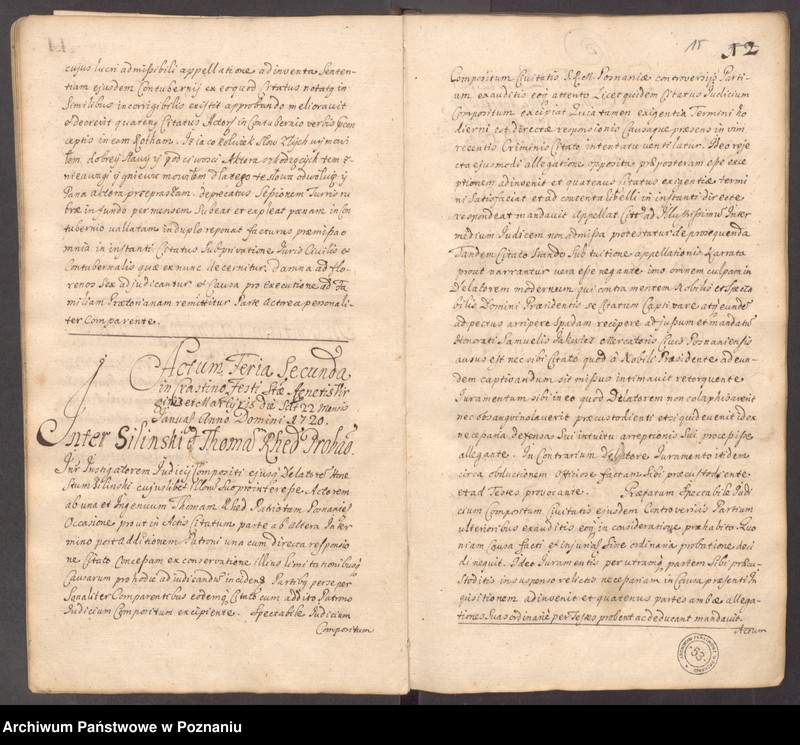 cujus lucri admissibili appellatione adinventa Senten-
tiam ejusdem Contubernij ex eo quod Citatus notatq in
Similibus incorrigibilis existit approbando melioravit
Decrevit quatenq Citatus Actorj in Contubernio verbis
ceptis in eam Rotham. Iz ia cokolwiek Słow Złych wymowi
łem, dobrey Sławy y pod ciwosci Aktora szkodzących tem z
niewagi y gniewu mowiłem dla tego te słowa odwołuię y
Pana Aktora przepraszam. deprecatus Sessionem Turris ru
bræ in fundo per mensem Subeat et expleat pœnam in Con
tubernio vallatam in duplo reponat facturus præmissa o
mnia in instanti Citatus Sub privatione Juris Civilis et
Contubernalis quæ ex nunc decernitur. damna ad flo-
renos Sex adjudicantur et Causa pro executione ad fa
miliam Prætorianam remittitur Parte Actorea personali-
ter Comparente.
Actum Feria Secunda
in Crastino Festi Stæ Agnetis Vir
ginis et Martyris die Scit 22 Mensis
Januarij Anno Domini 1720.
Inter Silinski et Thomam Rhed Probao.
Inr Instigatorem Judicij Compositi ejusq Delatorem Hone
stum Silinski cujuslibet illorum Suo pro interesse Actorem
ab una et Ingenuum Thomam Rhed Patriotam Posnanien
Occasione prout in Actis Citatum parte ab altera In ter
mino post additionem Patroni una cum directa responsio
ne Citato Concessam ex conservatione illius limitationibusq
Causarum pro hodie adjudicandum incidens Partibq per se per
sonaliter Comparentibus eodemq Citato cum addito Patrono
Judicium Compositum excipiente. Spectabile Judicium
Compositum
15 12
Compositum Civitatis S.R.M. Posnaniæ controversijs Parti-
um exauditis eisq attentis Licet quidem Citatus Judicium
Compositum excipiat Quia tamen exigentia Termini ho
dierni est directa responsio Causaque præsens in vim
recentis Criminis Citato intentata ventilatur. Ideo reje
cta ejusmodi allegatione opposita præposteram esse exce
ptionem adinvenit et quatenus Citatus exigentiæ termi
ni Satisfaciat et ad contenta libelli in instanti directe
respondeat mandavit Appellat Citt ad Illustrissimum Inter
medium Judicem non admissa protestatur de prosequenda
Tandem Citato Stando Sub tuitione appellationis Narrata
prout narrantur vera esse negante imo omnem culpam in
Delatorem modernum qui contra mentem Nobilis et Specta
bilis Domini Præsidentis se Citatum Captivare atq eundem
ad pectus arripere Spadam recipere ad jussum et mandatum
Honorati Samuelis Jakowicz Mercatoris Civis Posnaniensis
ausus est nec sibi Citato quod a Nobili Præsidente ad eun-
dem captivandum sit missus intimavit retorquente
Juramentum sibi in eo quod Delatorem non colaphisaverit
nec obsangvinolaverit præcustodienti et si quid evenit id ex
necessaria defensa Sui intuitu arreptionis Sui præcipisse
allegante. In Contrarium Delatore Juramento itidem
circa obductionem Officiose factam Sibi præcustodiente
et ad Testes provocante. Præfatum Spectabile Judi
cium Compositum Civitatis ejusdem Controversijs Partium
ulterioribus exauditis eisq in consideratione præhabitis Quo
niam Causa facti et injuriarum Sine ordinaria probatione deci
di nequit. Ideo Juramentis per utramq partem Sibi præcu-
stoditis in suspenso relictis necessariam in Causa præsenti In
quisitionem adinvenit et quatenus partes ambæ allega-
tiones Suas ordinarie per Testes probent ac deducant mandavit.
Actum
ARCHIWUM PAŃSTWOWE W POZNANIU
53
Archiwum Państwowe w Poznaniu